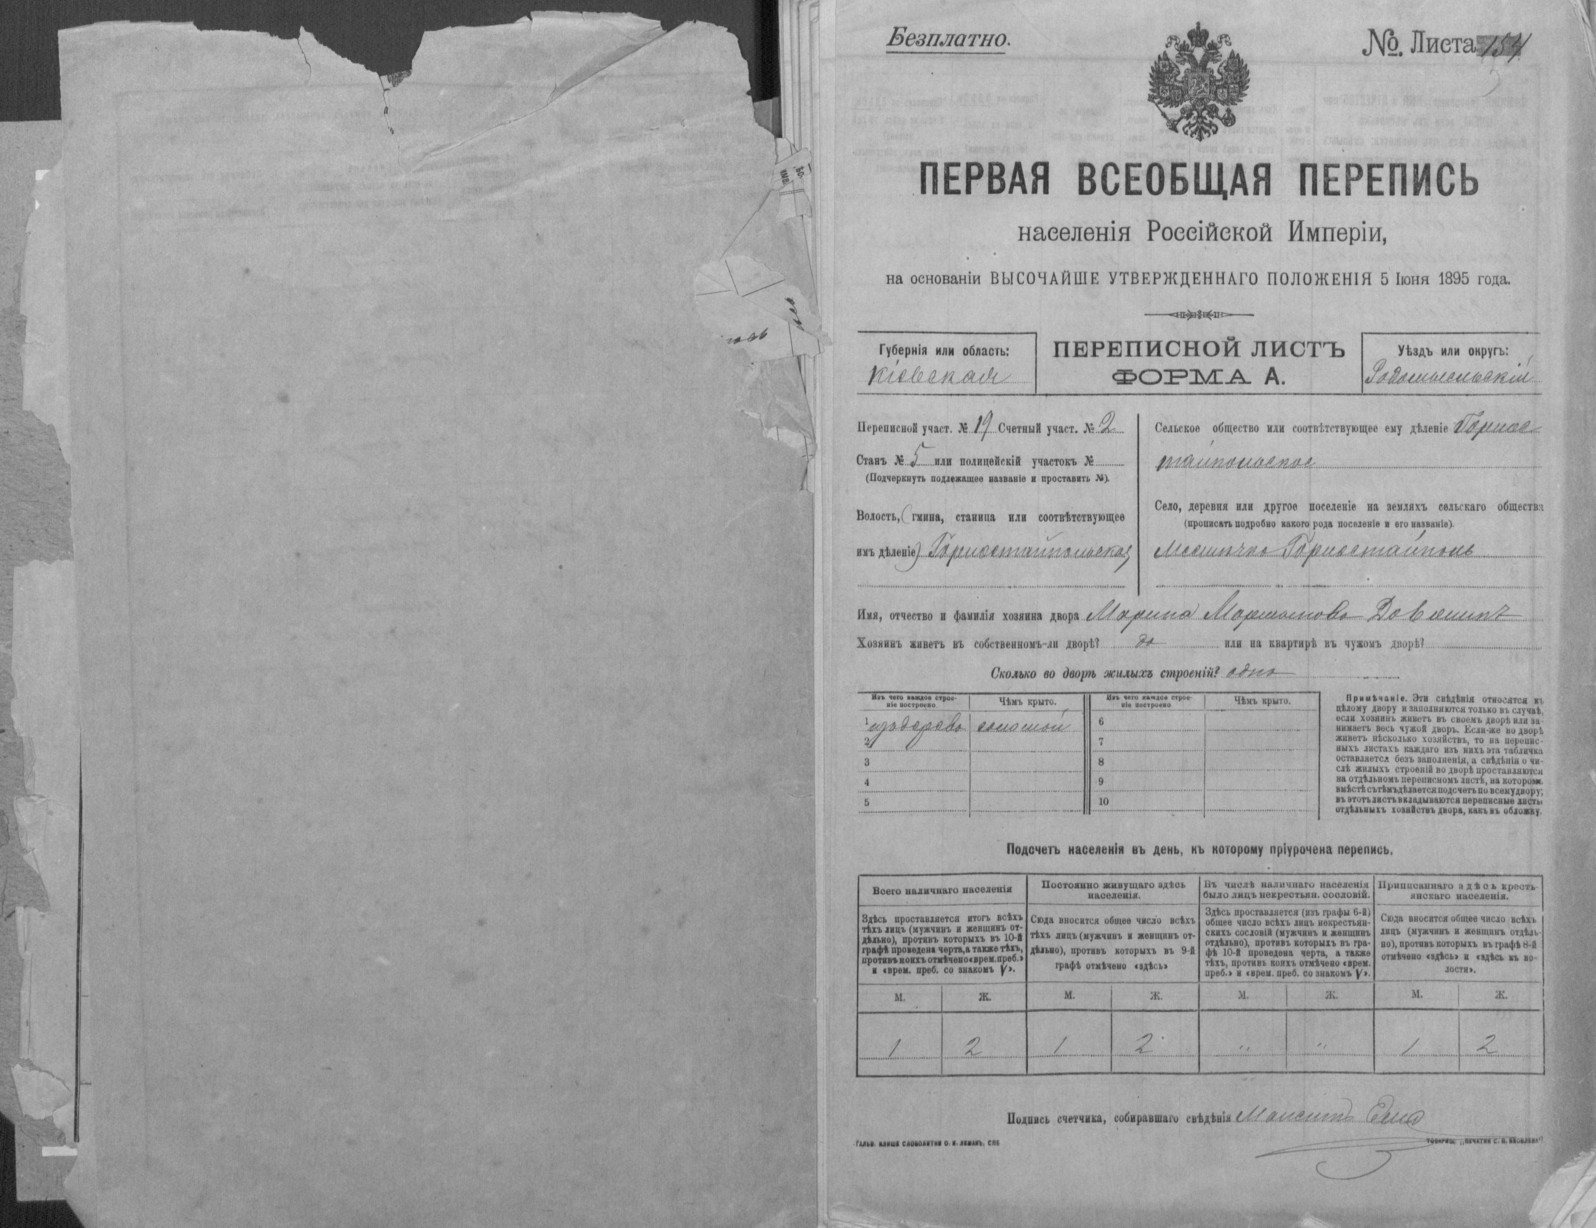 Безплатно.
№ Листа 154
ПЕРВАЯ ВСЕОБЩАЯ ПЕРЕПИСЬ
населенія Россійской Имперіи,
на основаніи ВЫСОЧАЙШЕ УТВЕРЖДЕННАГО ПОЛОЖЕНІЯ 5 Іюня 1895 года.
Губернія или область:
Кіевская
ПЕРЕПИСНОЙ ЛИСТЪ
ФОРМА А.
Уѣздъ или округъ:
Радомысльскій
Переписной участ. № 19 Счетный участ. № 2
Станъ № 5 или полицейскій участокъ №
(Подчеркнуть подлежащее названіе и проставить №).
Волость, (гмина, станица или соотвѣтствующее
имъ дѣленіе) Горностайпольская
Сельское общество или соотвѣтствующее ему дѣленіе Горнос
тайпольское
Село, деревня или другое поселеніе на земляхъ сельскаго общества
(прописать подробно какого рода поселеніе и его названіе).
Местечко Горностайполь
Имя, отчество и фамилія хозяина двора Марина
Хозяинъ живетъ въ собственномъ-ли дворѣ? да или на квартирѣ въ чужомъ дворѣ?
Сколько во дворѣ жилыхъ строеній? одно
Изъ чего каждое строеніе построено
Чѣмъ крыто.
Изъ чего каждое строеніе построено
Чѣмъ крыто.
1 изъ дерева соломой 6
2 7
3 8
4 9
5 10
Примѣчаніе. Эти свѣдѣнія относятся къ
цѣлому двору и заполняются только въ случаѣ,
если хозяинъ живетъ въ своемъ дворѣ или за-
нимаетъ весь чужой дворъ. Если-же во дворѣ
живетъ нѣсколько хозяйствъ, то на перепис-
ныхъ листахъ каждаго изъ нихъ эта табличка
оставляется безъ заполненія, а свѣдѣнія о чи-
слѣ жилыхъ строеній во дворѣ проставляются
на отдѣльномъ переписномъ листѣ, на которомъ
вмѣстѣ съ тѣмъ дѣлается подсчетъ по всему двору;
въ этотъ листъ вкладываются переписные листы
отдѣльныхъ хозяйствъ двора, какъ въ обложку.
Подсчетъ населенія въ день, къ которому пріурочена перепись.
Всего наличнаго населенія
Здѣсь проставляется итогъ всѣхъ
тѣхъ лицъ (мужчинъ и женщинъ от-
дѣльно), противъ которыхъ въ 10-й
графѣ проведена черта, а также тѣхъ,
противъ коихъ отмѣчено «врем. преб.»
и «врем. преб. со знакомъ V».
Постоянно живущаго здѣсь
населенія.
Сюда вносится общее число всѣхъ
тѣхъ лицъ (мужчинъ и женщинъ от-
дѣльно), противъ которыхъ въ 9-й
графѣ отмѣчено «здѣсь»
Въ числѣ наличнаго населенія
было лицъ некрестьян. сословій.
Здѣсь проставляется (изъ графы 6-й)
общее число всѣхъ лицъ некрестьян-
скихъ сословій (мужчинъ и женщинъ
отдѣльно), противъ которыхъ въ гра-
фѣ 10-й проведена черта, а также
тѣхъ, противъ коихъ отмѣчено «врем.
преб.» и «врем. преб. со знакомъ V».
Приписаннаго здѣсь кресть-
янскаго населенія.
Сюда вносится общее число всѣхъ
лицъ (мужчинъ и женщинъ отдѣль-
но), противъ которыхъ въ графѣ 8-й
отмѣчено «здѣсь» и «здѣсь въ во-
лости».
М. Ж. М. Ж. М. Ж. М. Ж.
1 2 1 2 " " 1 2
Подпись счетчика, собиравшаго свѣдѣнія